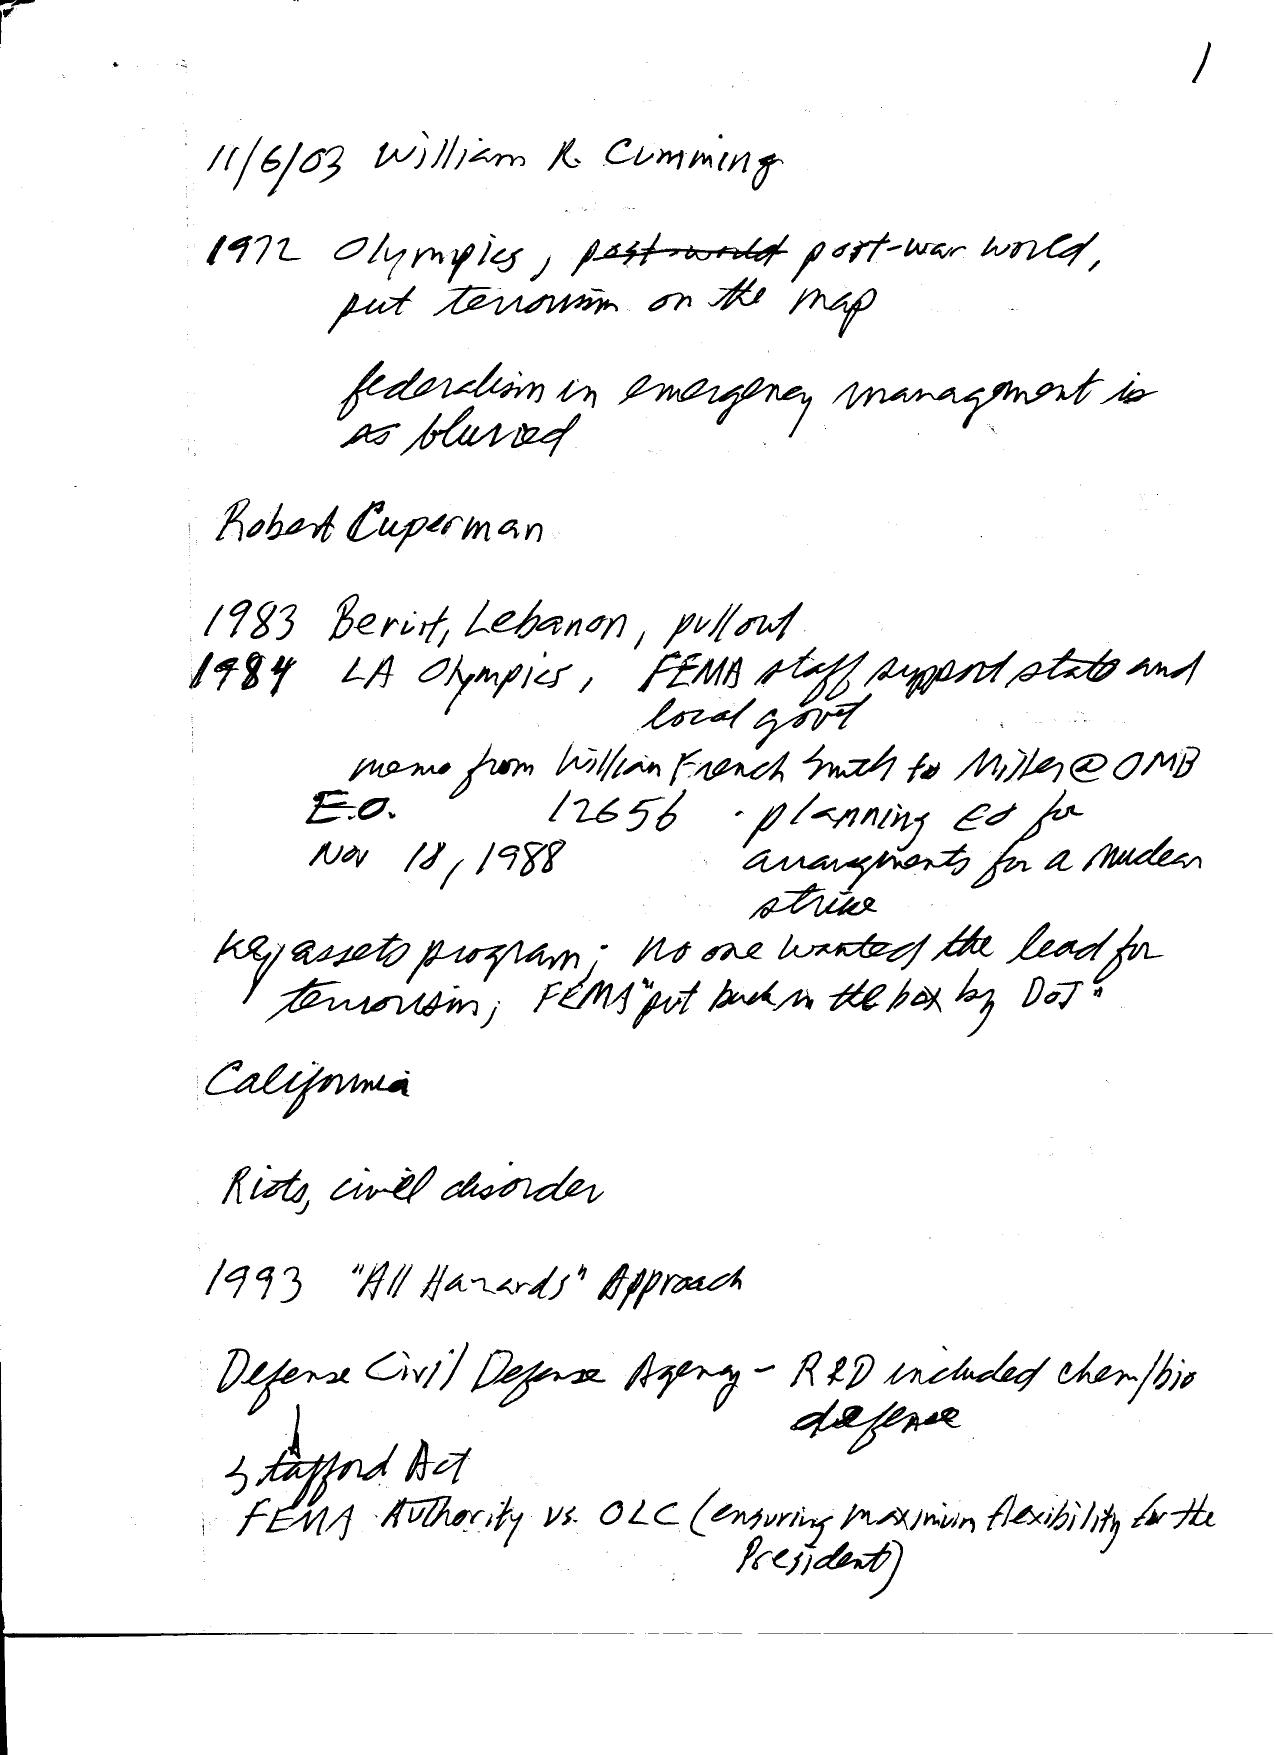 1
11/6/03 William R. Cumming
1972 Olympics, post-world post-war world,
put terrorism on the map
federalism in emergency managment is
as blurred
Robert Cuperman
1983 Berirt, Lebanon, pullout
1984 LA Olympics, FEMA staff support state and
local govt
memo from William French Smith to Miller @ OMB
E.O. 12656 - planning EO for
Nov 18, 1988 arrangments for a nuclear
strike
Key assets program; no one wanted the lead for
terrorism; FEMA "put back in the box by DoJ"
California
Riots, civil disorder
1993 "All Hazards" Approach
Defense Civil Defense Agency - R&D included chem/bio
defense
Stafford Act
FEMA Authority vs. OLC (ensuring maximum flexibility for the
President)